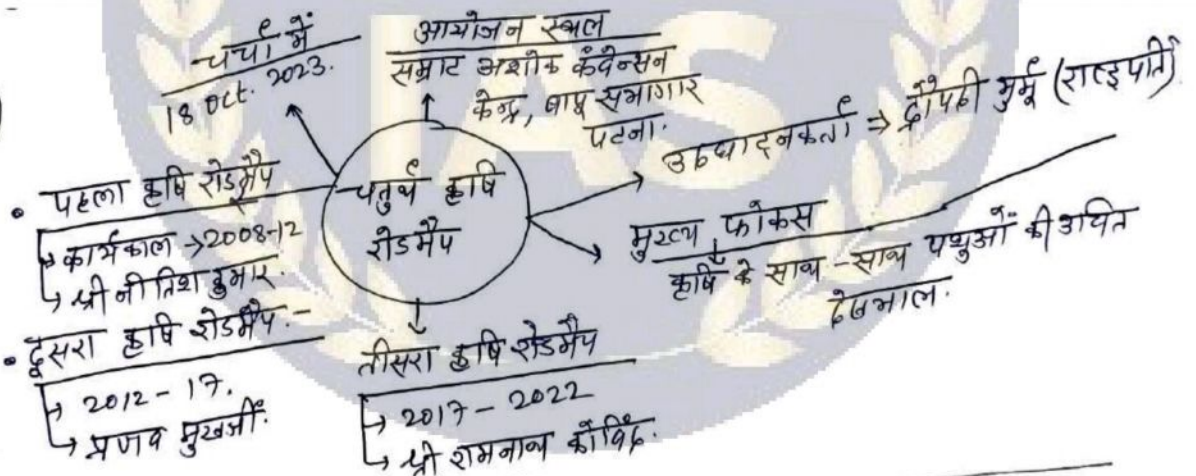 चर्चा में
18 oct. 2023.
आयोजन स्थल
सम्राट अशोक कंवेन्सन
केन्द्र, बापू सभागार
पटना.
उद्घाटनकर्ता ⇒ द्रौपदी मुर्मू (राष्ट्रपति)
चतुर्थ कृषि
रोडमैप
मुख्य फोकस
कृषि के साथ-साथ पशुओं की उचित
देखभाल.
• पहला कृषि रोडमैप
कार्यकाल → 2008-12
श्री नीतिश कुमार.
• दूसरा कृषि रोडमैप.-
2012-17.
प्रणव मुखर्जी.
तीसरा कृषि रोडमैप
2017-2022
श्री रामनाथ कोविंद.
IAS